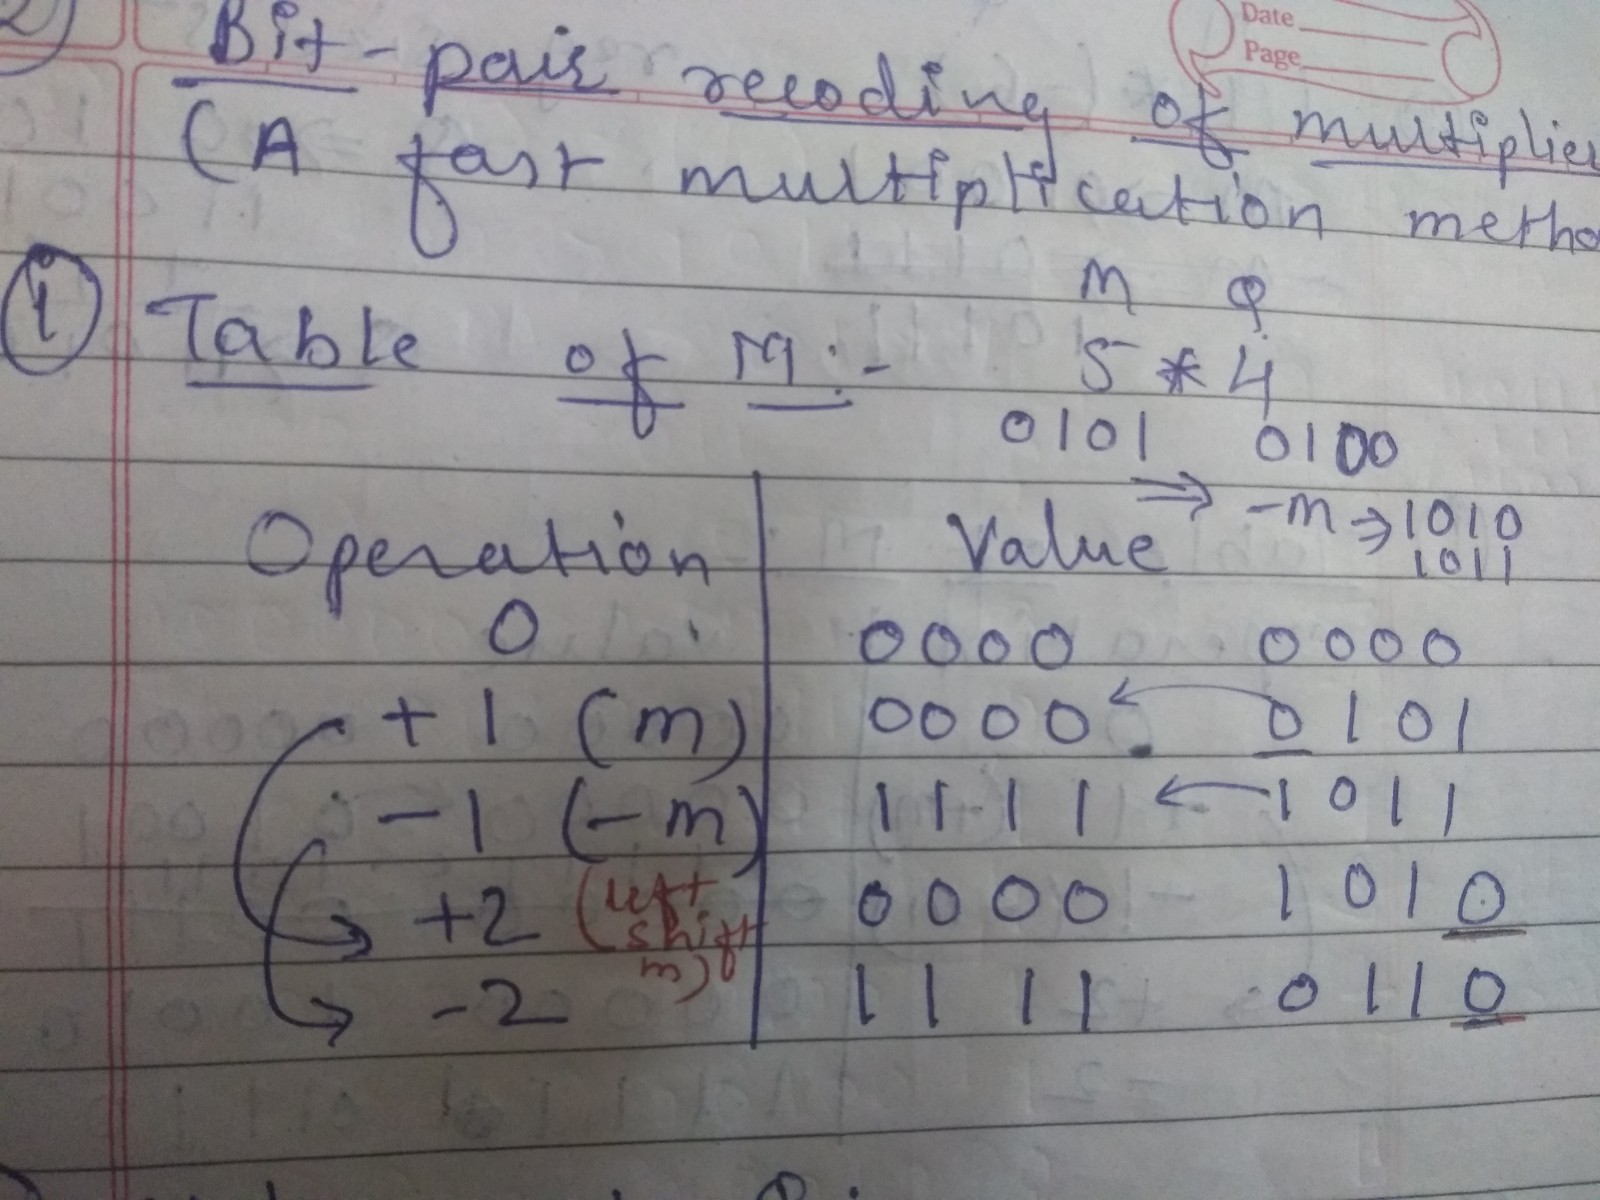 2)
Date
Page
Bit-pair recoding of multiplier
(A fast multiplication metho
i Table of M:-
M Q
5 * 4
0101 0100
⇒ -M ⇒ 1010
1011
Operation Value
0 0000 0000
+1 (m) 0000 ← 0101
-1 (-m) 1111 ← 1011
+2 (left shift m) 0000 1010
-2 1111 0110